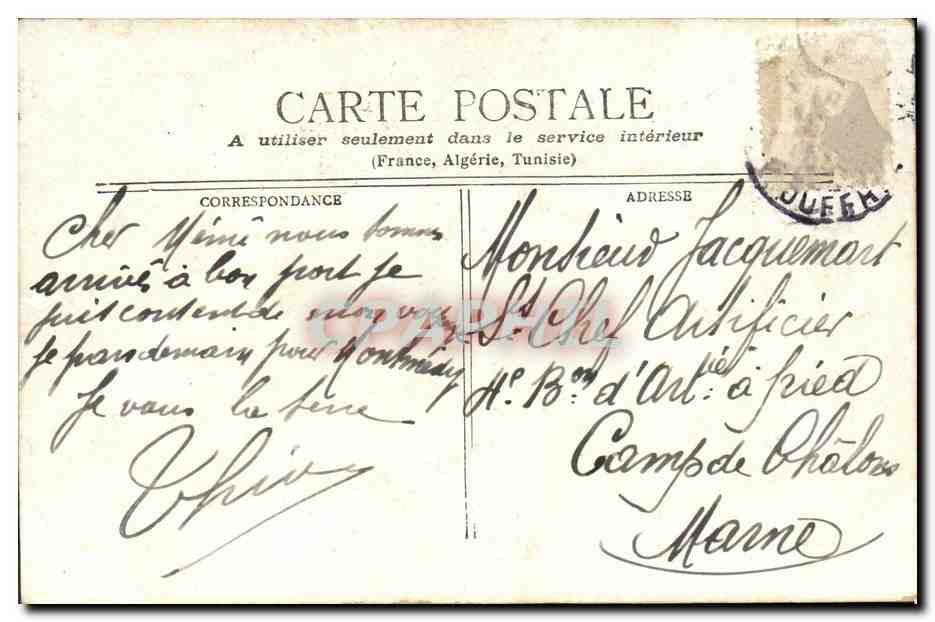 CARTE POSTALE
A utiliser seulement dans le service intérieur
(France, Algérie, Tunisie)
CORRESPONDANCE
Cher Mémé nous sommes
arrivés à bon port je
suis content de mon voyage
je pars demain pour Montmédy
Je vous la serre
ADRESSE
Monsieur Jacquemart
St Chef Artificier
4e Bon d'Artie à pied
Camp de Châlons
Marne
CPARAMA